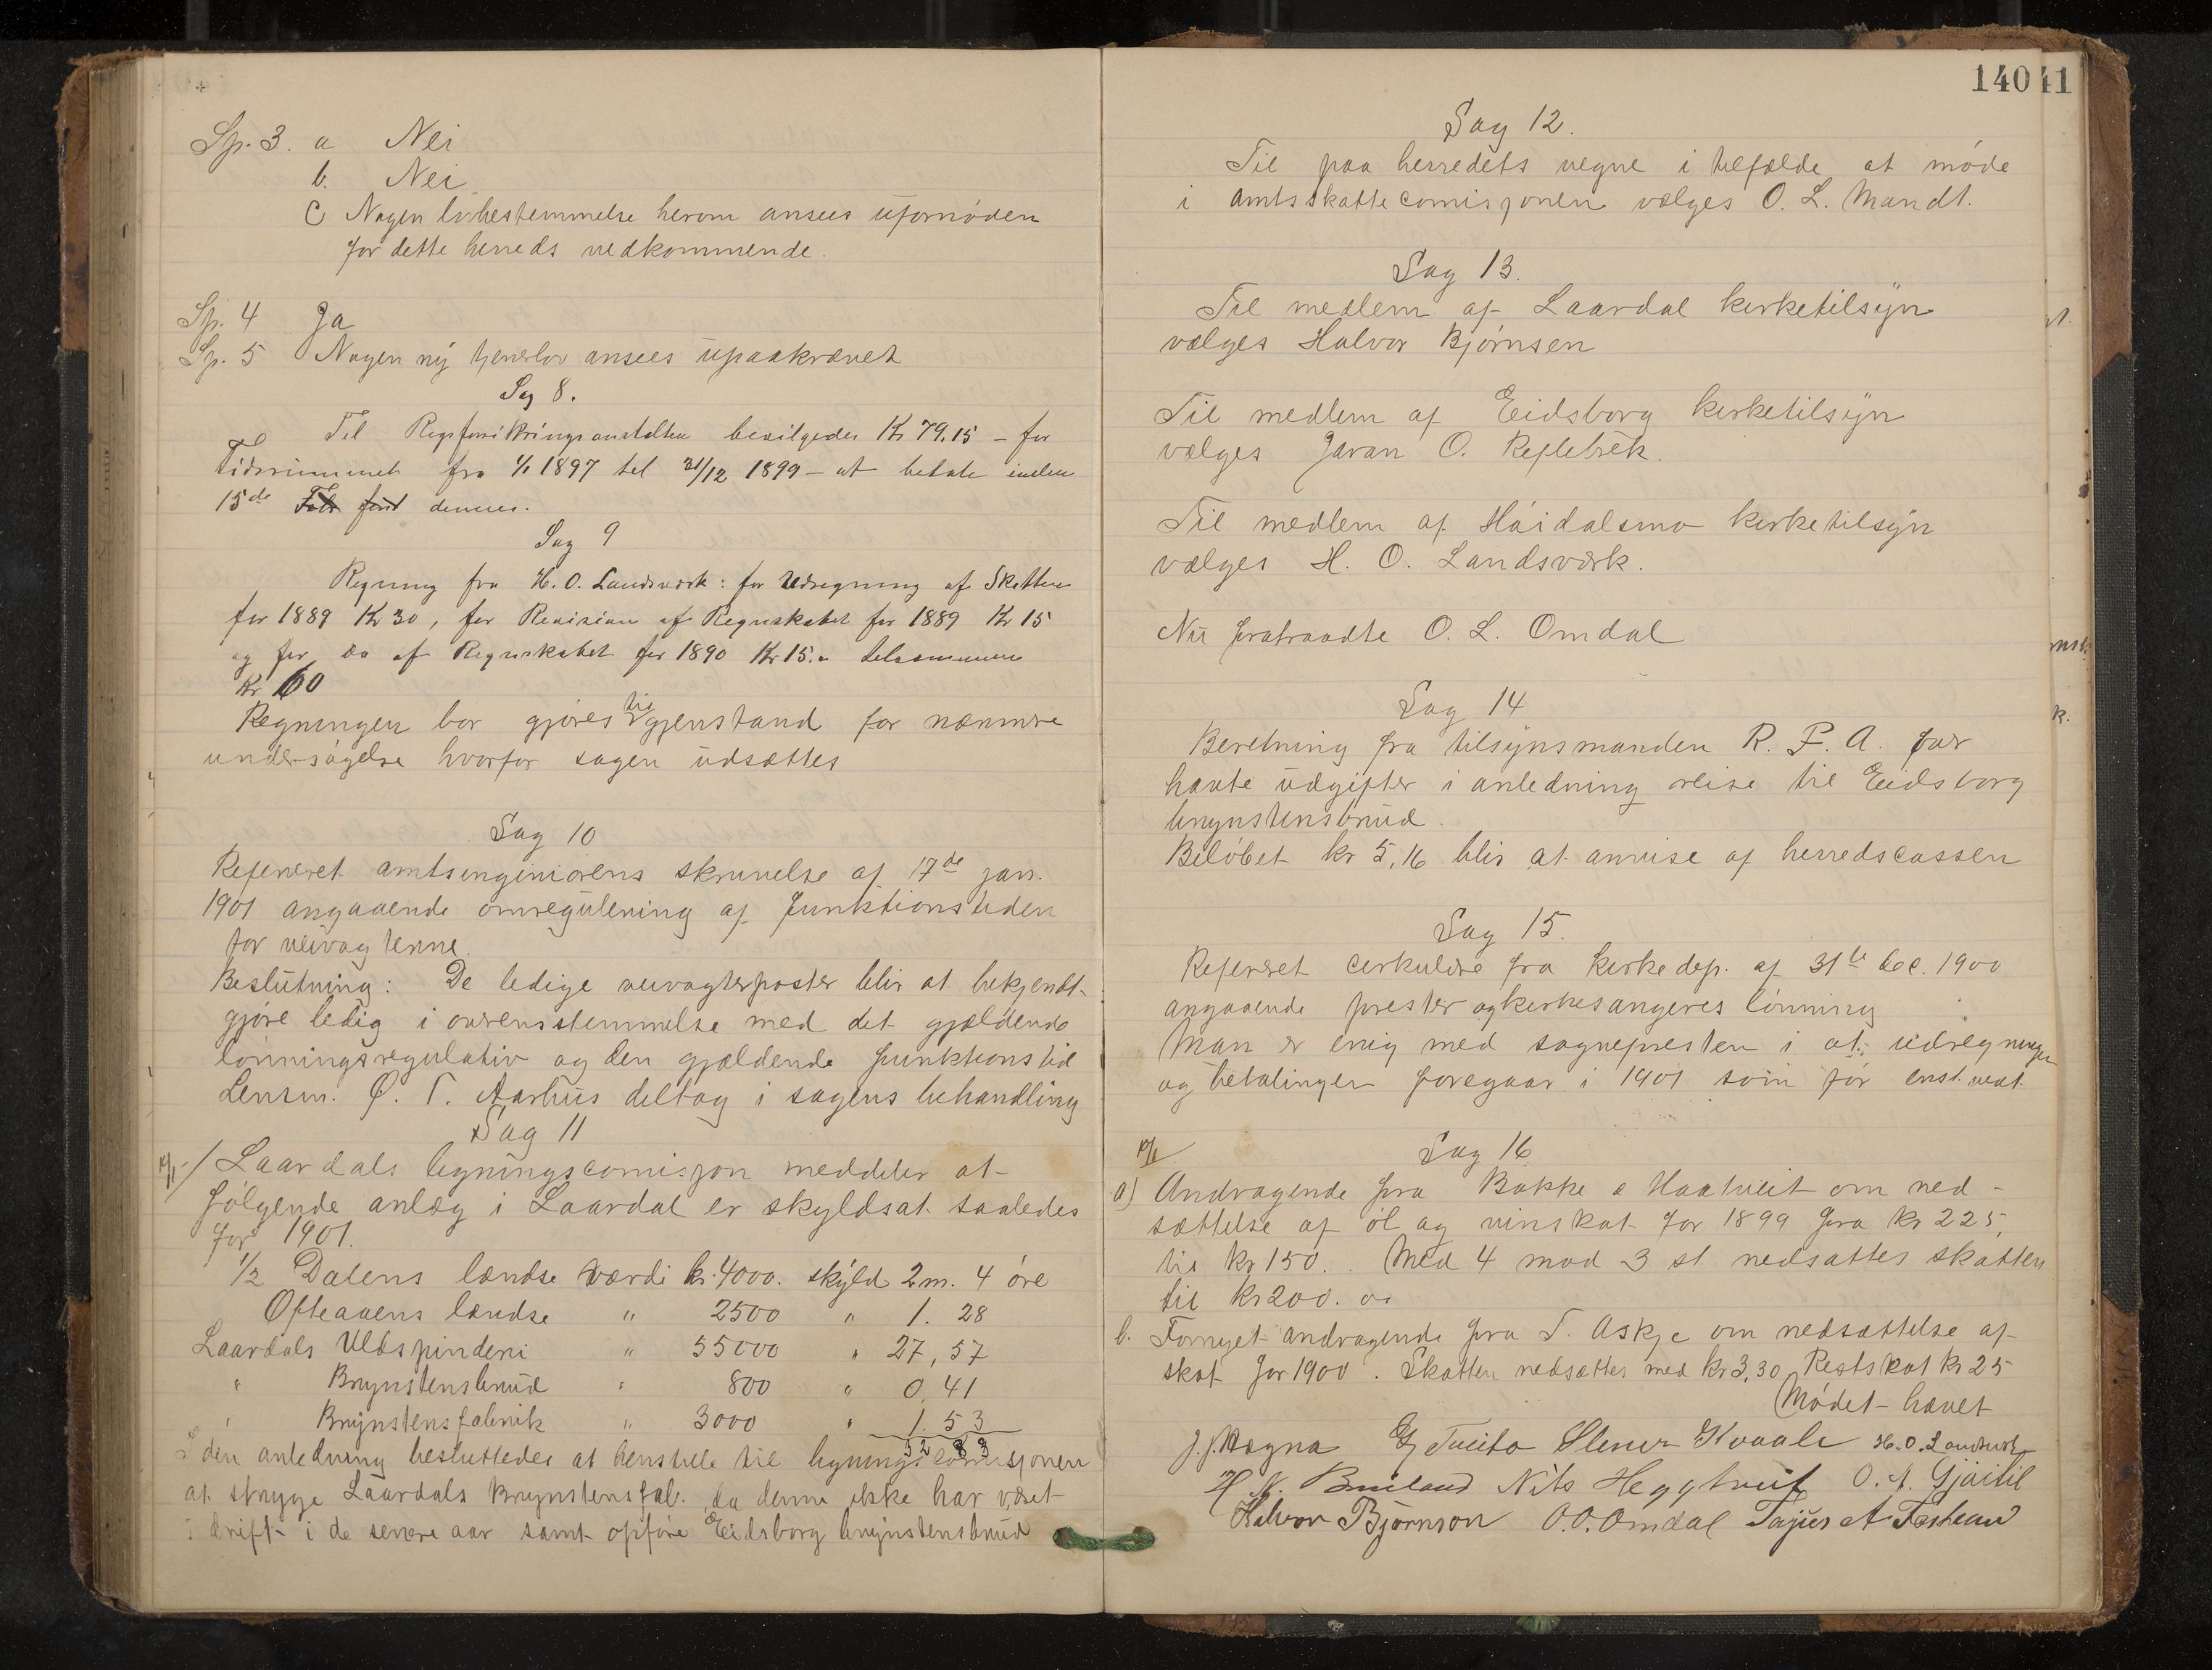 Sp. 3. a Nei
b. Nei
c Nogen lovbestemmelse herom ansees ufornøden
for dette herreds vedkommende.
Sp. 4 Ja
Sp. 5 Nogen ny tjenerlov ansees upaakrævet
Sag 8.
Til Rigsforsikringsanstalten bevilgedes Kr 79.15 – for
Tidsrummet fra 1/1 1897 til 31/12 1899 – at betale inden
15de Febr førstk dennes.
Sag 9
Regning fra H. O. Landsværk: for Udregning af Skatten
for 1889 Kr 30, for Revision af Regnskabet for 1889 Kr 15
og for Do af Regnskabet for 1890 Kr 15.- tilsammen
Kr 60
Regningen bør gjøres til gjenstand for nærmere
undersøgelse hvorfor sagen udsættes
Sag 10
Refereret amtsingeniørens skrivelse af 17de jan.
1901 angaaende omregulering af funktionstiden
for veivogterne.
Beslutning: De ledige veivogterposter blir at bekjendt-
gjøre ledig i overensstemmelse med det gjældende
lønningsregulativ og den gjældende funktionstid
Lensm. Ø. T. Aarhus deltog i sagens behandling
Sag 11
Laardals ligningscomisjon meddeler at
følgende anlæg i Laardal er skyldsat saaledes
for 1901.
1/2 Dalens lændse værdi kr. 4000. skyld 2 m. 4 øre
Ofteaaens lændse " 2500 " 1. 28
Laardals Uldspinderi " 55000 " 27,57
" Brynstensbrud " 800 " 0,41
" Brynstensfabrik " 3000 " 1.53
32 83
I den anledning besluttedes at henstille til ligningscomisjonen
at stryge Laardals brynstensfab. da denne ikke har været
i drift i de senere aar samt opføre Eidsborg brynstensbrud
140 41
Sag 12.
Til paa herredets vegne i tilfælde at møde
i amtsskattecomisjonen vælges O. L. Mandt.
Sag 13.
Til medlem af Laardal kirketilsyn
vælges Halvor Bjørnsen
Til medlem af Eidsborg kirketilsyn
vælges Jøran O.
Til medlem af Høidalsmo kirketilsyn
vælges H. O. Landsværk.
Nu fratraadte O. L. Omdal
Sag 14
Beretning fra tilsynsmanden R. F. A. for
havte udgifter i anledning reise til Eidsborg
brynstensbrud.
Beløbet kr 5,16 blir at anvise af herredscassen
Sag 15.
Refereret cirkulære fra kirkedep. af 31te dec. 1900
angaaende prester og kirkesangeres lønning
Man er enig med sognepresten i at udregningen
og betalingen foregaar i 1901 som før enst. vedt.
Sag 16
a) Andragende fra Bakke & Haatveit om ned-
sættelse af øl og vinskat for 1899 fra kr 225,
til kr 150. Med 4 mod 3 st nedsattes skatten
til kr 200. oo
b. Fornyet andragende fra T. Askje om nedsættelse af
skat for 1900. Skatten nedsættes med kr 3,30 Restskat kr 25
Mødet hævet
Steinar Kvaale H. O. Landsværk
Nils Heggtveit
Halvor Bjørnson O. O. Omdal